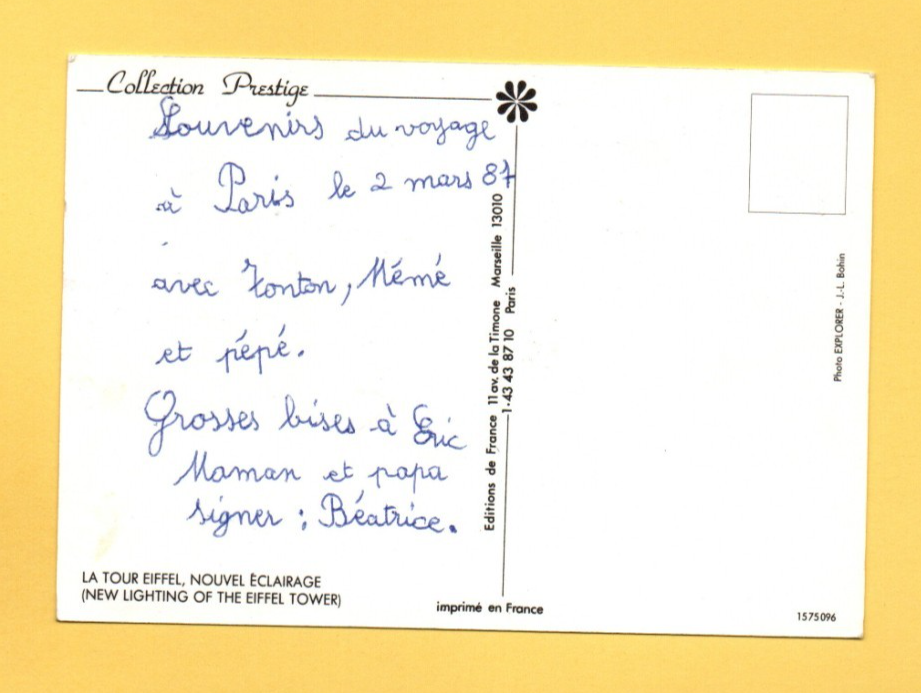 Collection Prestige
Souvenirs du voyage
à Paris le 2 mars 87
avec Tonton, Mémé
et pépé.
Grosses bises à Eric
Maman et papa
signer : Béatrice.
LA TOUR EIFFEL, NOUVEL ÉCLAIRAGE
(NEW LIGHTING OF THE EIFFEL TOWER)
Editions de France 11 av. de la Timone Marseille 13010
1·43 43 87 10 Paris
imprimé en France
Photo EXPLORER - J.-L. Bohin
1575096